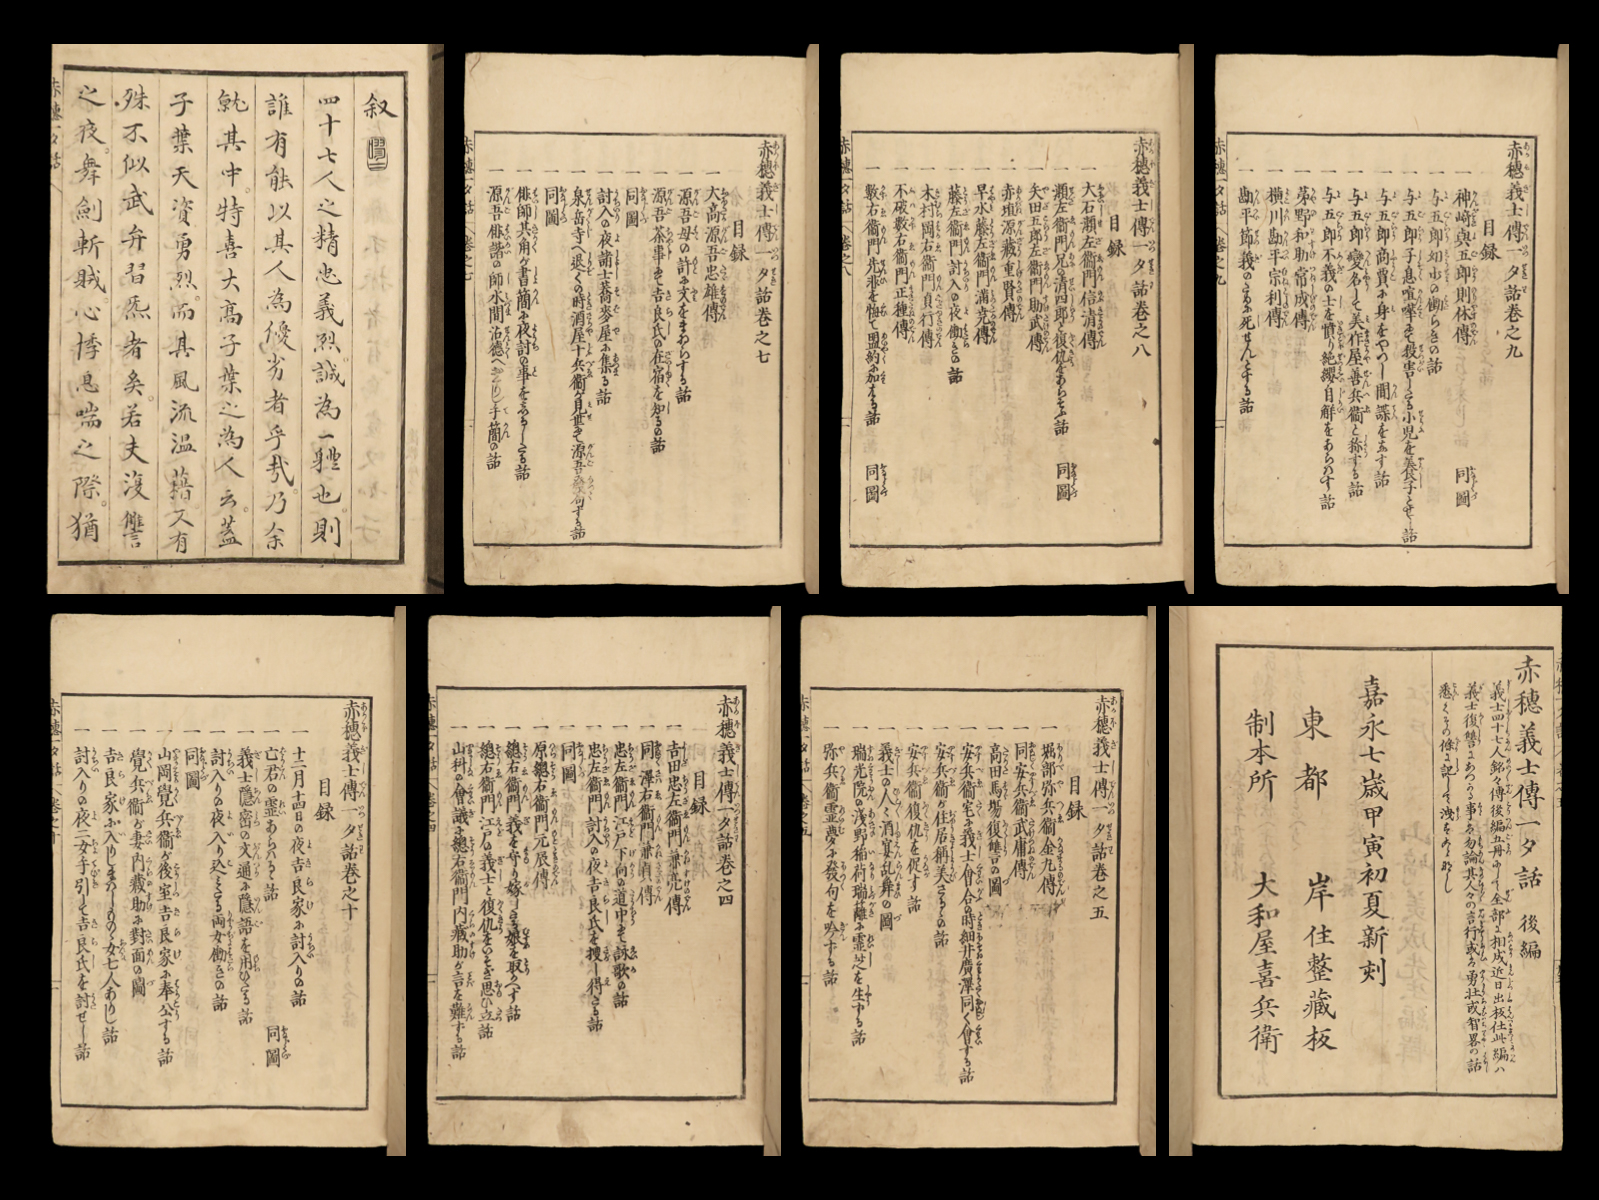 叙
四十七人之精忠義烈誠為一軆也則
誰有能以其人為優劣者乎哉乃余
就其中特喜大高子葉之為人云蓋
子葉天資勇烈而其風流温藉又有
殊不似武弁習氣者矣若夫復讐
之夜舞劍斬賊心悸息喘之際猶
赤穗義士傳一夕話巻之七
目録
一 大高源吾忠雄傳
一 源吾母の許に文をまゐらする話
一 源吾茶事にて吉良氏の在宿を知るの話
一 同圖
一 討入の夜諸士蕎麥屋に集る話
一 泉岳寺へ退くの時酒屋十兵衞が見世にて源吾發句する話
一 同圖
一 俳師其角が書簡に夜討の事をふるしたる話
一 源吾俳諧の師水間沾德へおくりし手簡の話
赤穗義士傳一夕話巻之八
目録
一 大石瀬左衞門信清傳
一 瀬左衞門兄の清四郎と復仇をあらそふ話 同圖
一 矢田五郎左衞門助武傳
一 赤垣源藏重賢傳
一 早水藤左衞門満尭傳
一 藤左衞門討入の夜働きの話
一 木村岡右衞門貞行傳
一 不破數右衞門正種傳
一 數右衞門先非を悔て盟約に加はる話 同圖
赤穗義士傳一夕話巻之九
目録
一 神崎與五郎則休傳 同圖
一 与五郎幼少の働らきの話
一 与五郎子息喧嘩にて殺害したる小児を養子とせし話
一 与五郎商賈に身をやつし間諜をなす話
一 与五郎變名して美作屋善兵衞と称する話
一 与五郎不義の士を憤り絶纓自解をあらはす話
一 茅野和助常成傳
一 横川勘平宗利傳
一 勘平節義のために死せんとする話
赤穗義士傳一夕話巻之十
目録
一 十二月十四日の夜吉良家に討入りの話
一 亡君の靈あらはるゝ話 同圖
一 義士隱密の文通に隱語を用ひたる話
一 討入りの夜入り込たる両女働きの話
一 同圖
一 山岡覺兵衞が後室吉良家に奉公する話
一 覺兵衞が妻内藏助に對面の圖
一 吉良家に入りしまはしもの女七人ありし話
一 討入りの夜二女手引して吉良氏を討せし話
赤穗義士傳一夕話巻之四
目録
一 吉田忠左衞門兼亮傳
一 同 澤右衞門兼貞傳
一 忠左衞門江戸下向の道中にて詠歌の話
一 忠左衞門討入の夜吉良氏を捜し得たる話
一 同圖
一 原惣右衞門元辰傳
一 惣右衞門義を守り嫁したる娘を取かへす話
一 惣右衞門江戸の義士と復仇をいそぎ思ひ立話
一 山科の會議に惣右衞門内藏助が言を難ずる話
赤穗義士傳一夕話巻之五
目録
一 堀部弥兵衞金九傳
一 同 安兵衞武庸傳
一 高田馬場復讐の圖
一 安兵衞宅に義士會合の時細井廣澤同く會する話
一 安兵衞が住居稱美さるゝの話
一 安兵衞復仇を促す話
一 義士の人々酒宴乱舞の圖
一 瑞光院の浅野稲荷瑞籬に霊芝を生ずる話
一 弥兵衞霊夢に發句を吟ずる話
赤穗義士傳一夕話 後編
義士四十七人銘々傳後編五冊にして全部に相成近日出板仕此編ハ
義士復讐にあつかる事ハ勿論其人々の言行或ハ勇壮或ハ智畧の話
悉くその條に記して洩すことなし
嘉永七歳甲寅初夏新刻
東都 岸住整藏板
制本所 大和屋喜兵衛